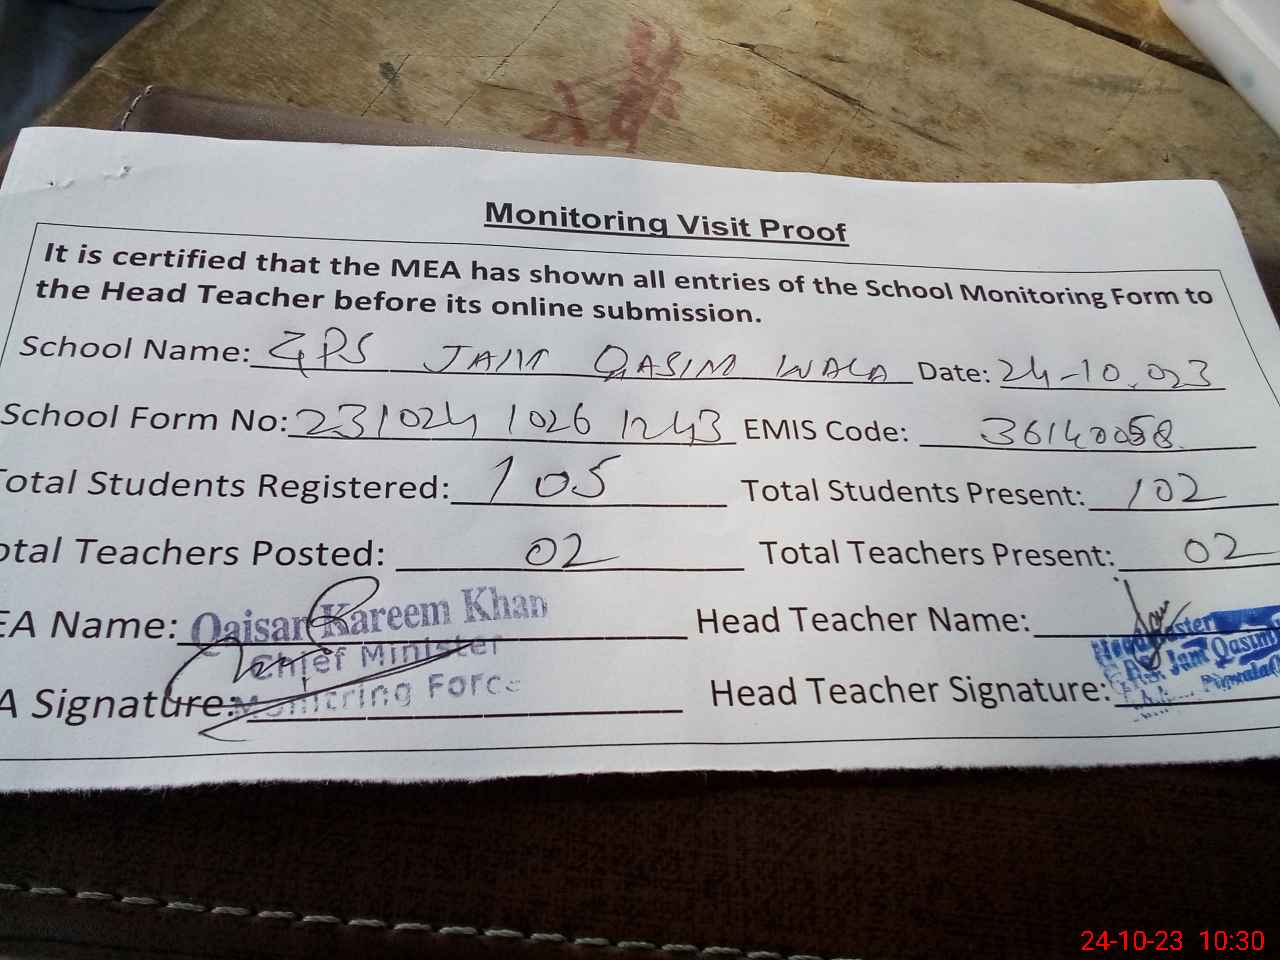 Monitoring Visit Proof
It is certified that the MEA has shown all entries of the School Monitoring Form to
the Head Teacher before its online submission.
School Name: GPS JAM QASIM WALA Date: 24-10.023
School Form No: 231024 1026 1243 EMIS Code: 36140058
Total Students Registered: 105 Total Students Present: 102
otal Teachers Posted: 02 Total Teachers Present: 02
EA Name: Qaisar Kareem Khan Head Teacher Name:
Chief Minister Headmaster
A Signature: Monitoring Force Head Teacher Signature: Jam Qasim
24-10-23 10:30